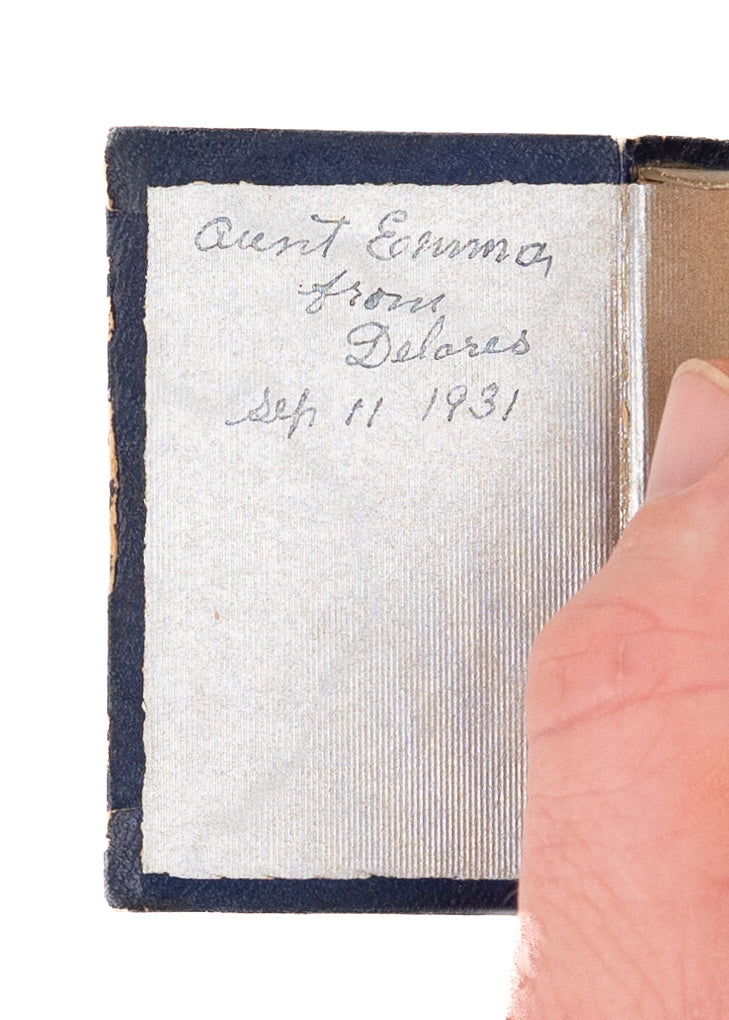 Aunt Emma
from
Delores
Sep 11 1931